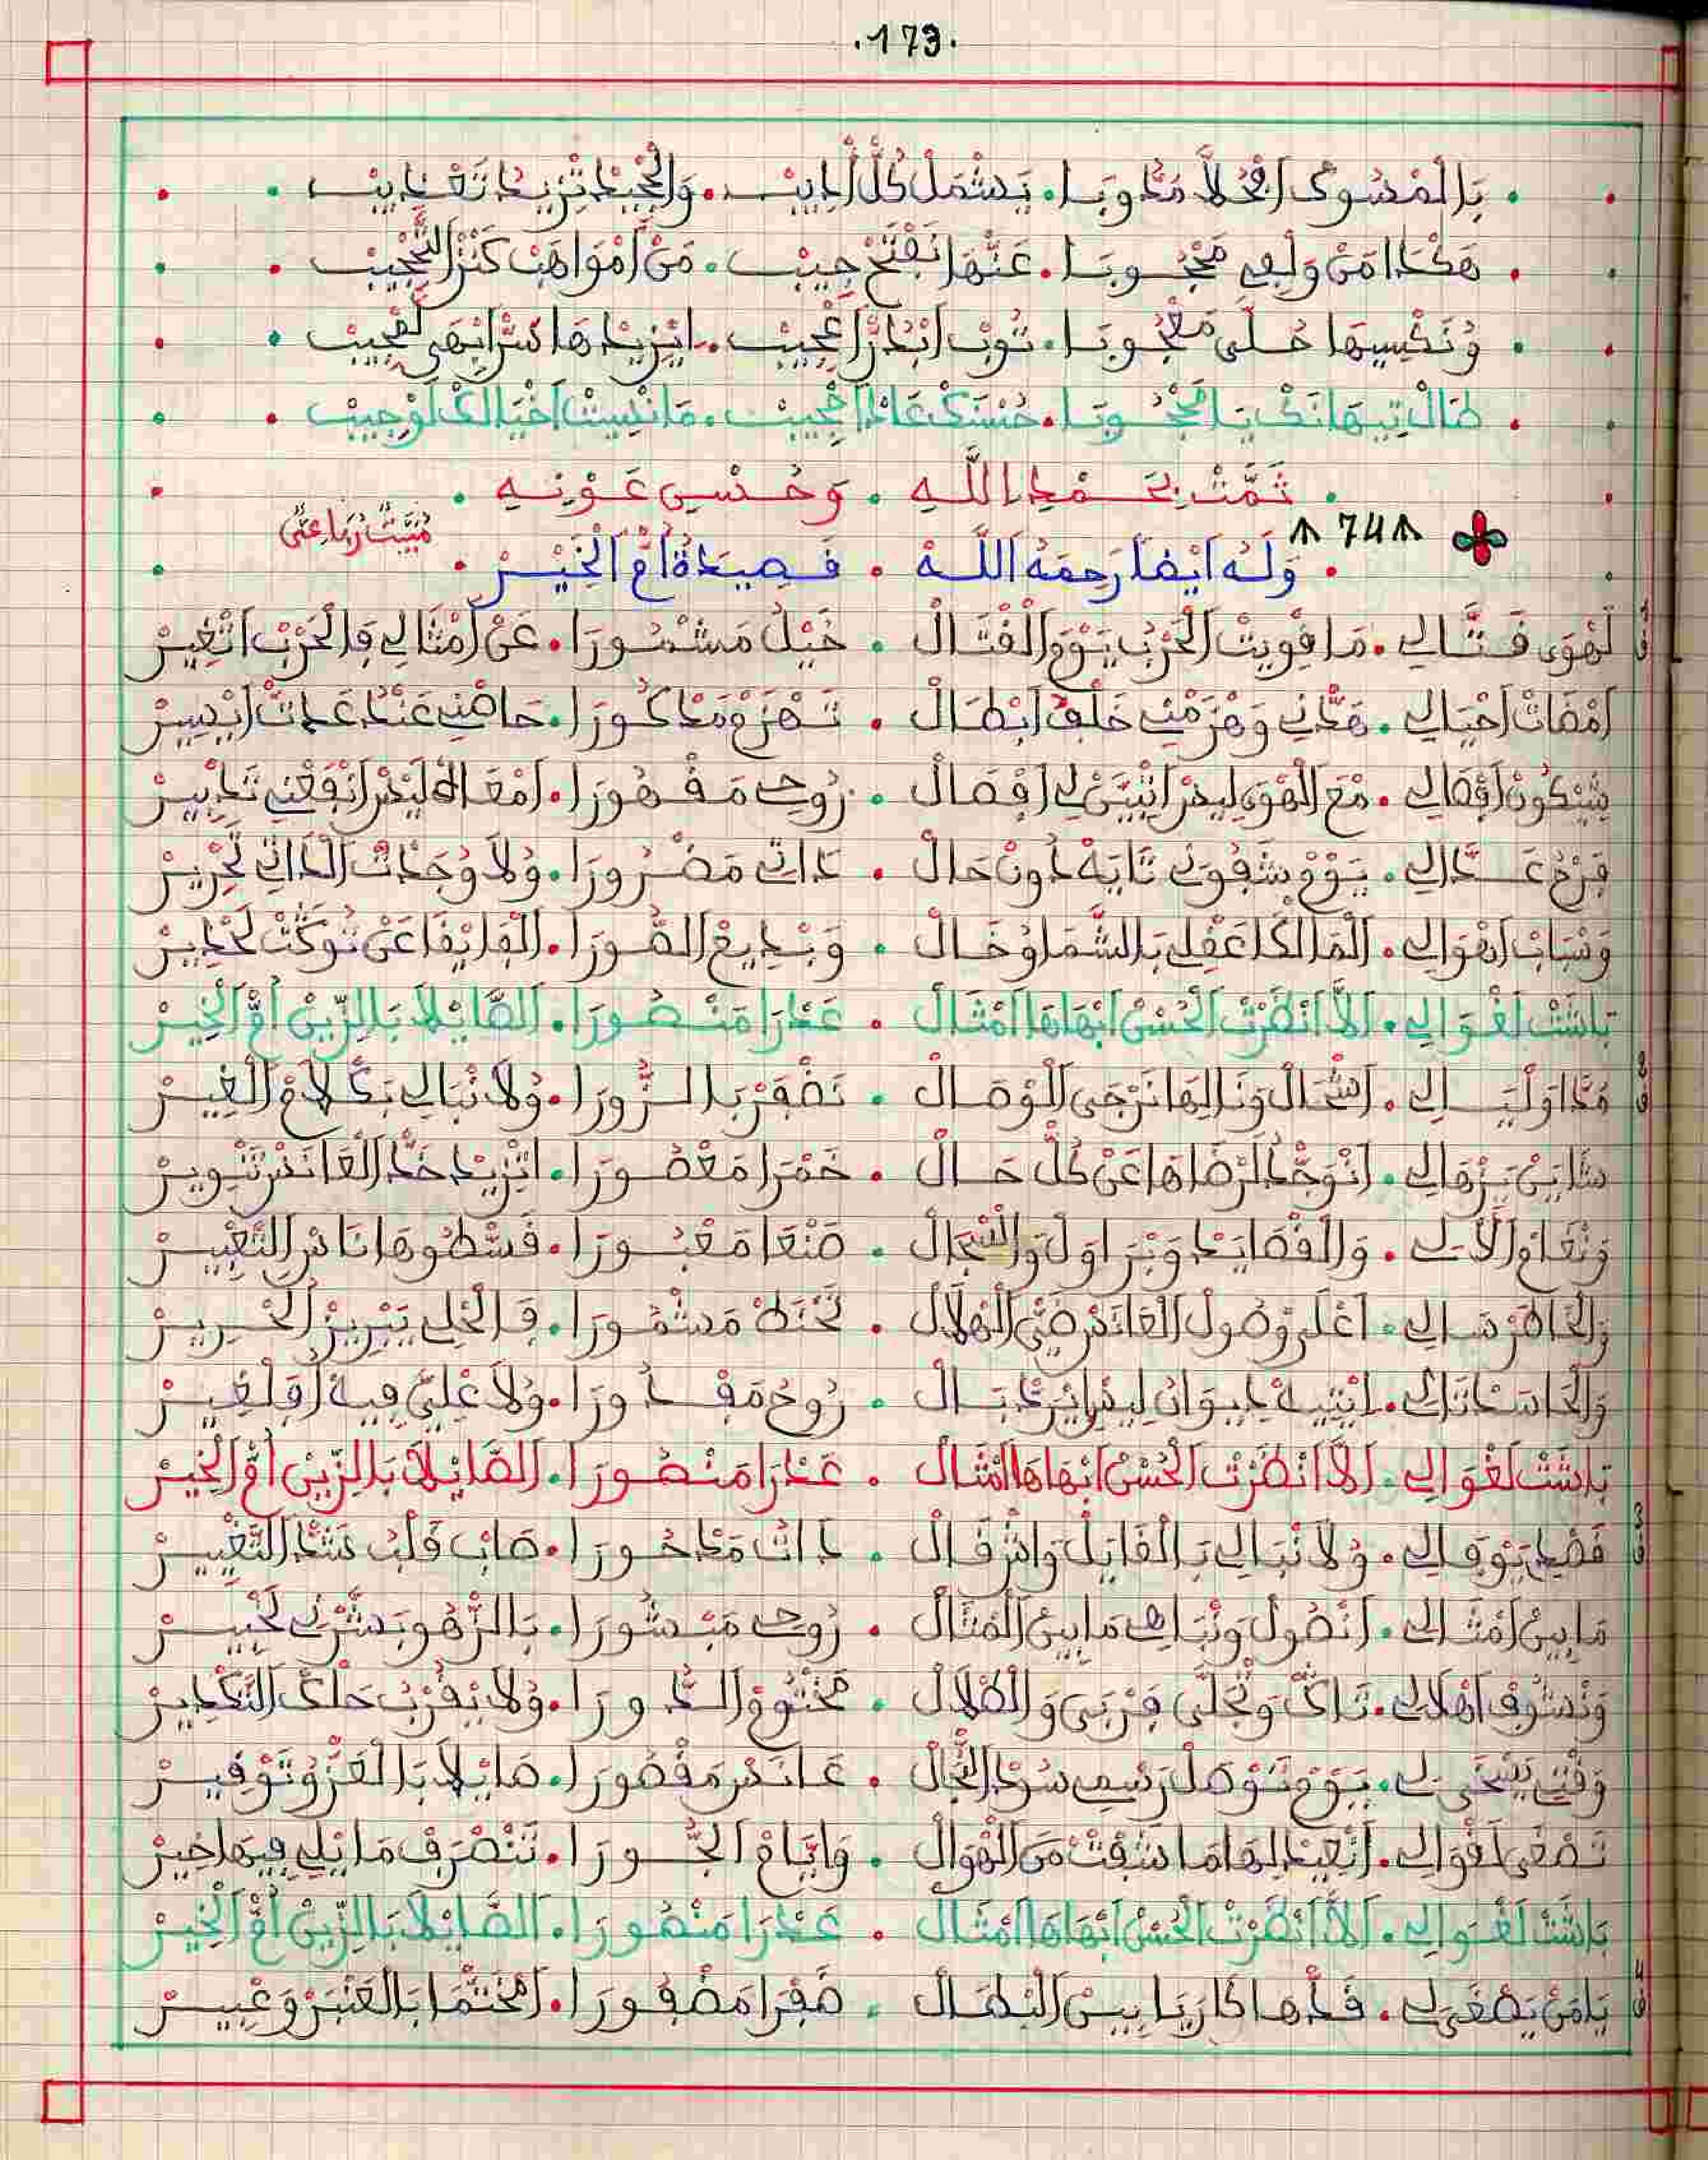 .173.
بَالْمْسُوكْ افْحُلاَّ مَدْوبَا . يَشْمَلْ كُلّْ أَدِيبْ . وَالْجِيدْ تْزِيدْ تَعْدِيبْ
هَكْدَا مَنْ وَلْعِي مَحْجُوبَا . عَنْهَا نَفْتَحْ جِيبْ . مَنْ أَمْوَاهَبْ كَنْزْ التَّحْجِيبْ
وُنَكْسِيهَا حُلَّى مَعْجُوبَا . تُوبْ ابْدَرّْ اعْجِيبْ . ايْزِيدْهَا سَرّْ ابْهَى
طَالْ تِيهَانَكْ يَا الْمَحْجُوبَا . حُسْنَكْ عَادْ احْجِيبْ . مَا نْسِيتْ اخْيَالَكْ لَوْجِيبْ
ثَمَّتْ بِحَمْدِ اللَّهِ . وَحُسْنِ عَوْنِهِ
74
مُبَيَّتْ رُبَاعِي
وَلَهُ أَيْضًا رَحِمَهُ اللَّهُ . قَصِيدَةُ أُمّْ الْخَيْرْ
لَهْوَى فَتَّالِي . مَا قْوِيتْ الْحَرْبْ يَوْمْ الْقْتَالْ . خَيْلُ مَشْمُورَا . عَنْ أَمْثَالِي فَالْحَرْبْ اتْغِيرْ
امْضَاتْ احْيَالِي . هَدْنِي وَهْزَمْنِي خَلْفْ ابْطَالْ . تَهْزَمْ مَدْكُورَا . حَاضْنِي عَنْد
اوْصَالِي . مْعَ الْهْوَى لِيسْ ابْقَى لِي اوْصَالْ . رُوحِي مَقْهُورَا . امْعَاهْ لِيسْ انْفَعْنِي تَدْبِيرْ
فَرْحْ عَدَّالِي . يَوْمْ شَفُونِي تَايَهْ دُونْ حَالْ . دَاتِي مَضْرُورَا . وُلاَ وُجَدْتْ الدَاتِي تَحْرِيرْ
وَسْبَابْ اهْوَالِي . الْمَالْكَا عَقْلِي بَالشَّمَا وُخَالْ . وَبْدِيعْ الصُّورَا . الْفَايْقَا عَنْ
بَاشَتْ لَغْوَالِي . لاَلَّا انْظَرْتْ الْحُسْنْ ابْهَاهَا امْثَالْ . عَدْرَا مَنْصُورَا . الصَّايْلَا بَالزِّينْ أُمّْ الْخِيرْ
مَدَّا وَلْيَالِي . اشْحَالْ وَنَا لِيهَا نَرْجَى الْوْصَالْ . نَضْفَرْ بَالزُّورَا . وُلاَ نْبَالِي بَكْلَامْ الْغِيرْ
شَايَنْ يَزْهَالِي . انْوَجَّدْ لَرْضَاهَا عَنْ كُلّْ حَالْ . خَمْرَا مَعْصُورَا . اتْزِيدْ خَدّْ الْعَانَسْ تَنْوِيرْ
وَنْغَامْ الْآلِي . وَالْقْصَايَدْ وَبْرَاوَلْ وَالسْجَالْ . صَنْعَا مَعْبُورَا . قَسْطُوهَا نَاسْ التَّعْبِيرْ
وَالْخَاطَرْ سَالِي . اعْلَى وْصُولْ الْعَانَسْ ضَيّْ الْهْلَالْ . تَحْتَظْ مَشْمُورَا . فَالْحْلِي يَبْرِيزْ الْحْرِيرْ
وَالْحَاسَدْ تَالِي . ايْتِيهْ دِيوَانُ لِيسْ ايْرَدّْ بَالْ . رُوحُ مَفْدُورَا . وُلاَ عْلِيَّ فِيهْ
بَاشَتْ لَغْوَالِي . لاَلَّا انْظَرْتْ الْحُسْنْ ابْهَاهَا امْثَالْ . عَدْرَا مَنْصُورَا . الصَّايْلَا بَالزِّينْ أُمّْ الْخِيرْ
قَصْدِي يَوْفَالِي . وُلاَ نْبَالِي بَالْقَايَلْ وَاشْ قَالْ . دَاتُ مَدْحُورَا . صَابْ قَلْبُ سَدّْ التَّغْيِيرْ
مَابِينْ امْثَالِي . انْصُولْ وَنْبَاهِي مَابِينْ الْمْثَالْ . رُوحِي مَبْشُورَا . بَالزّْهُو بَشَّرْنِي لَخْبِيرْ
وَنْشُوفْ اهْلَالِي . تَاكْ وَتْجَلَّى قُرْبِي وَالظْلَالْ . مَخْتُومْ الدُّورَا . وُلاَ يْقَرْبْ حَلْكْ التَّكْدِيرْ
وَقْتِي يَسْخَى لِي . يَوْمْ تَوْصَلْ رَسْمِي سُودْ النّْجَالْ . عَانَسْ مَقْصُورَا . صَايْلَا بَالْعَزّْ وُتَوْقِيرْ
تَصْغَى لَقْوَالِي . انْعِيدْ لِيهَا مَا شَفْتْ مَنْ الْهْوَالْ . وَايَّامْ الْجُورَا . تَنْصْرَفْ مَا يْلِي فِيهَا خِيرْ
بَاشَتْ لَغْوَالِي . لاَلَّا انْظَرْتْ الْحُسْنْ ابْهَاهَا امْثَالْ . عَدْرَا مَنْصُورَا . الصَّايْلَا بَالزِّينْ أُمّْ الْخِيرْ
يَامَنْ يَصْغَى لِي . قَدّْهَا كَارْيَا بِينْ الْبْطَالْ . ضَفْرَا مَضْفُورَا . امْخَتْمَا بَالْعَنْبَرْ وَعْبِيرْ